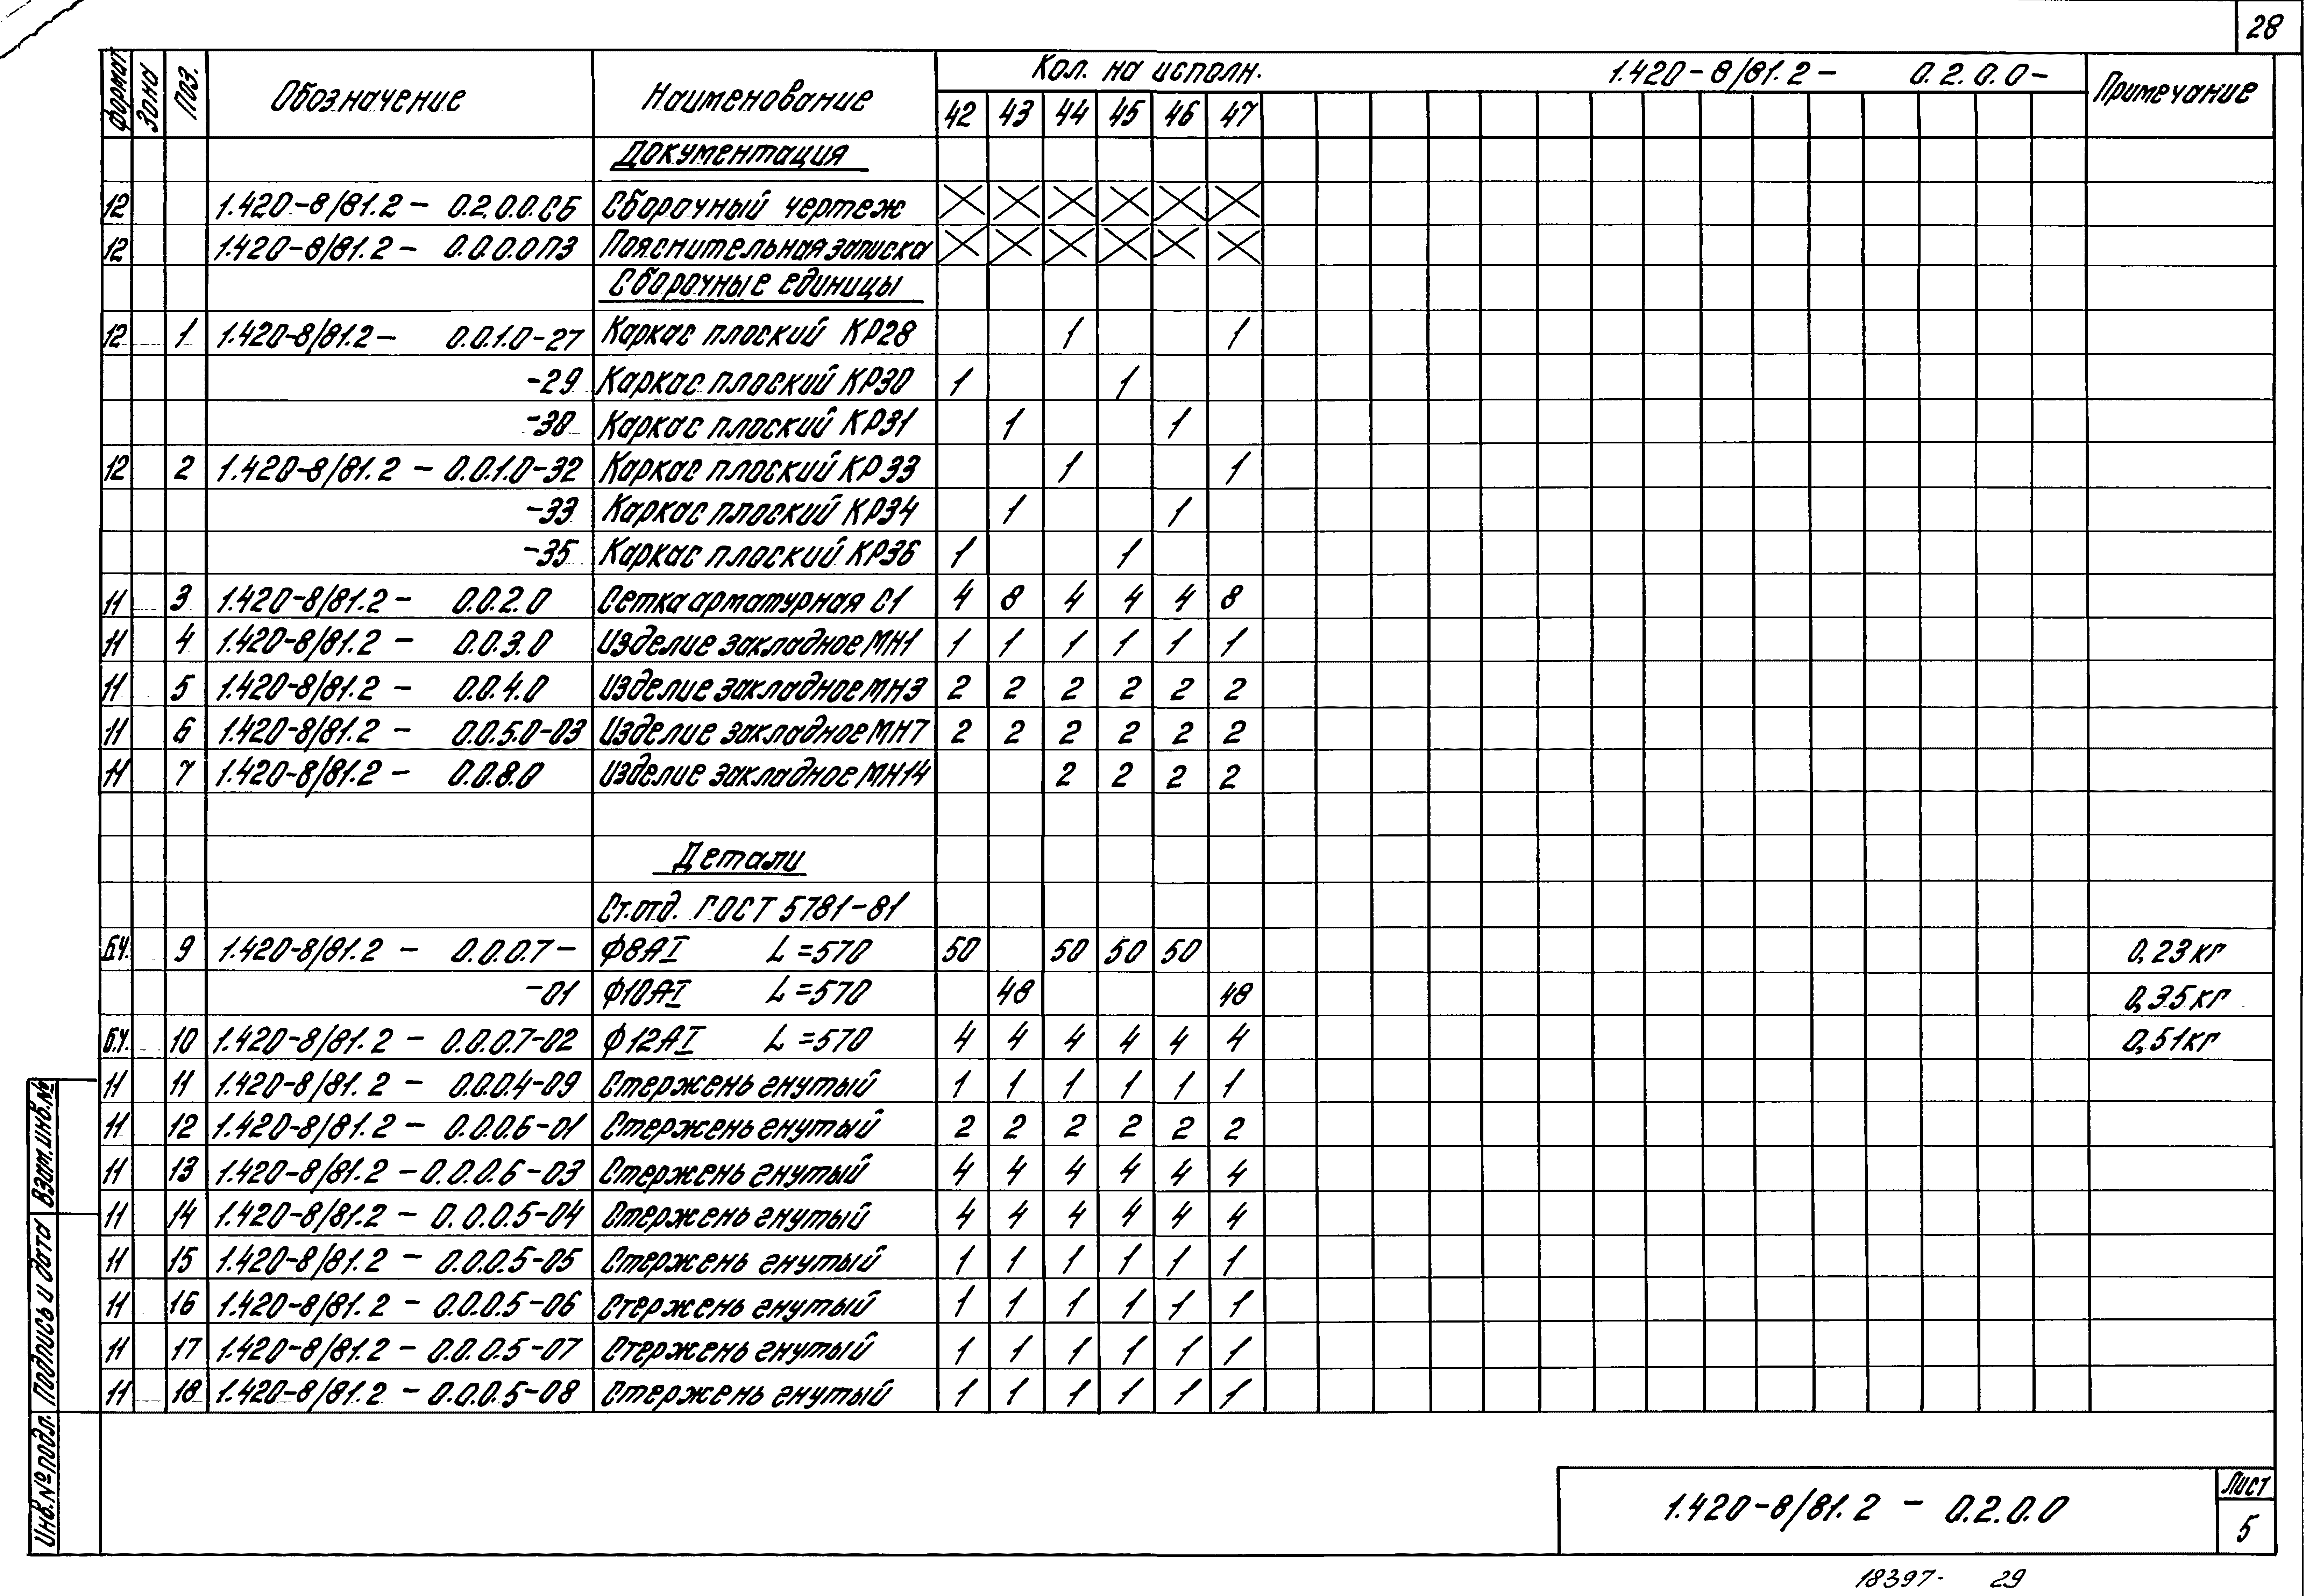 28
Формат Зона Поз. Обозначение Наименование Кол. на исполн. 1.420-8/81.2- 0.2.0.0- Примечание
42 43 44 45 46 47
Документация
12 1.420-8/81.2- 0.2.0.0.СБ Сборочный чертеж
12 1.420-8/81.2- 0.0.0.0ПЗ Пояснительная записка
Сборочные единицы
12 1 1.420-8/81.2- 0.0.1.0-27 Каркас плоский КР28 1 1
-29 Каркас плоский КР30 1 1
-30 Каркас плоский КР31 1 1
12 2 1.420-8/81.2-0.0.1.0-32 Каркас плоский КР33 1 1
-33 Каркас плоский КР34 1 1
-35 Каркас плоский КР36 1 1
11 3 1.420-8/81.2- 0.0.2.0 Сетка арматурная С1 4 8 4 4 4 8
11 4 1.420-8/81.2- 0.0.3.0 Изделие закладное МН1 1 1 1 1 1 1
11 5 1.420-8/81.2- 0.0.4.0 Изделие закладное МН3 2 2 2 2 2 2
11 6 1.420-8/81.2- 0.0.5.0-03 Изделие закладное МН7 2 2 2 2 2 2
11 7 1.420-8/81.2- 0.0.8.0 Изделие закладное МН14 2 2 2 2
Детали
Ст.отд. ГОСТ 5781-81
Б.Ч. 9 1.420-8/81.2- 0.0.0.7- ф8АI L=570 50 50 50 50 0,23кг
-01 ф10АI L=570 48 48 0,35кг
Б.Ч. 10 1.420-8/81.2- 0.0.0.7-02 ф12АI L=570 4 4 4 4 4 4 0,51кг
11 11 1.420-8/81.2- 0.0.0.4-09 Стержень гнутый 1 1 1 1 1 1
11 12 1.420-8/81.2- 0.0.0.6-01 Стержень гнутый 2 2 2 2 2 2
11 13 1.420-8/81.2-0.0.0.6-03 Стержень гнутый 4 4 4 4 4 4
11 14 1.420-8/81.2-0.0.0.5-04 Стержень гнутый 4 4 4 4 4 4
11 15 1.420-8/81.2-0.0.0.5-05 Стержень гнутый 1 1 1 1 1 1
11 16 1.420-8/81.2-0.0.0.5-06 Стержень гнутый 1 1 1 1 1 1
11 17 1.420-8/81.2-0.0.0.5-07 Стержень гнутый 1 1 1 1 1 1
11 18 1.420-8/81.2-0.0.0.5-08 Стержень гнутый 1 1 1 1 1 1
Взам.инв.№
Подпись и дата
Инв.№подл.
1.420-8/81.2 - 0.2.0.0
Лист
5
18397- 29